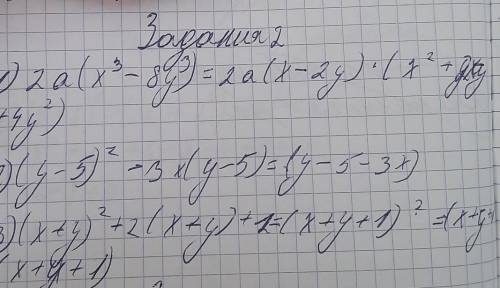 Задания 2
1) 2a(x³ - 8y³) = 2a(x - 2y) · (x² + 2xy
+4y²)
2) (y - 5)² - 3x(y - 5) = (y - 5 - 3x)
3) (x + y)² + 2(x + y) + 1 = (x + y + 1)² = (x + y +
(x + y + 1)